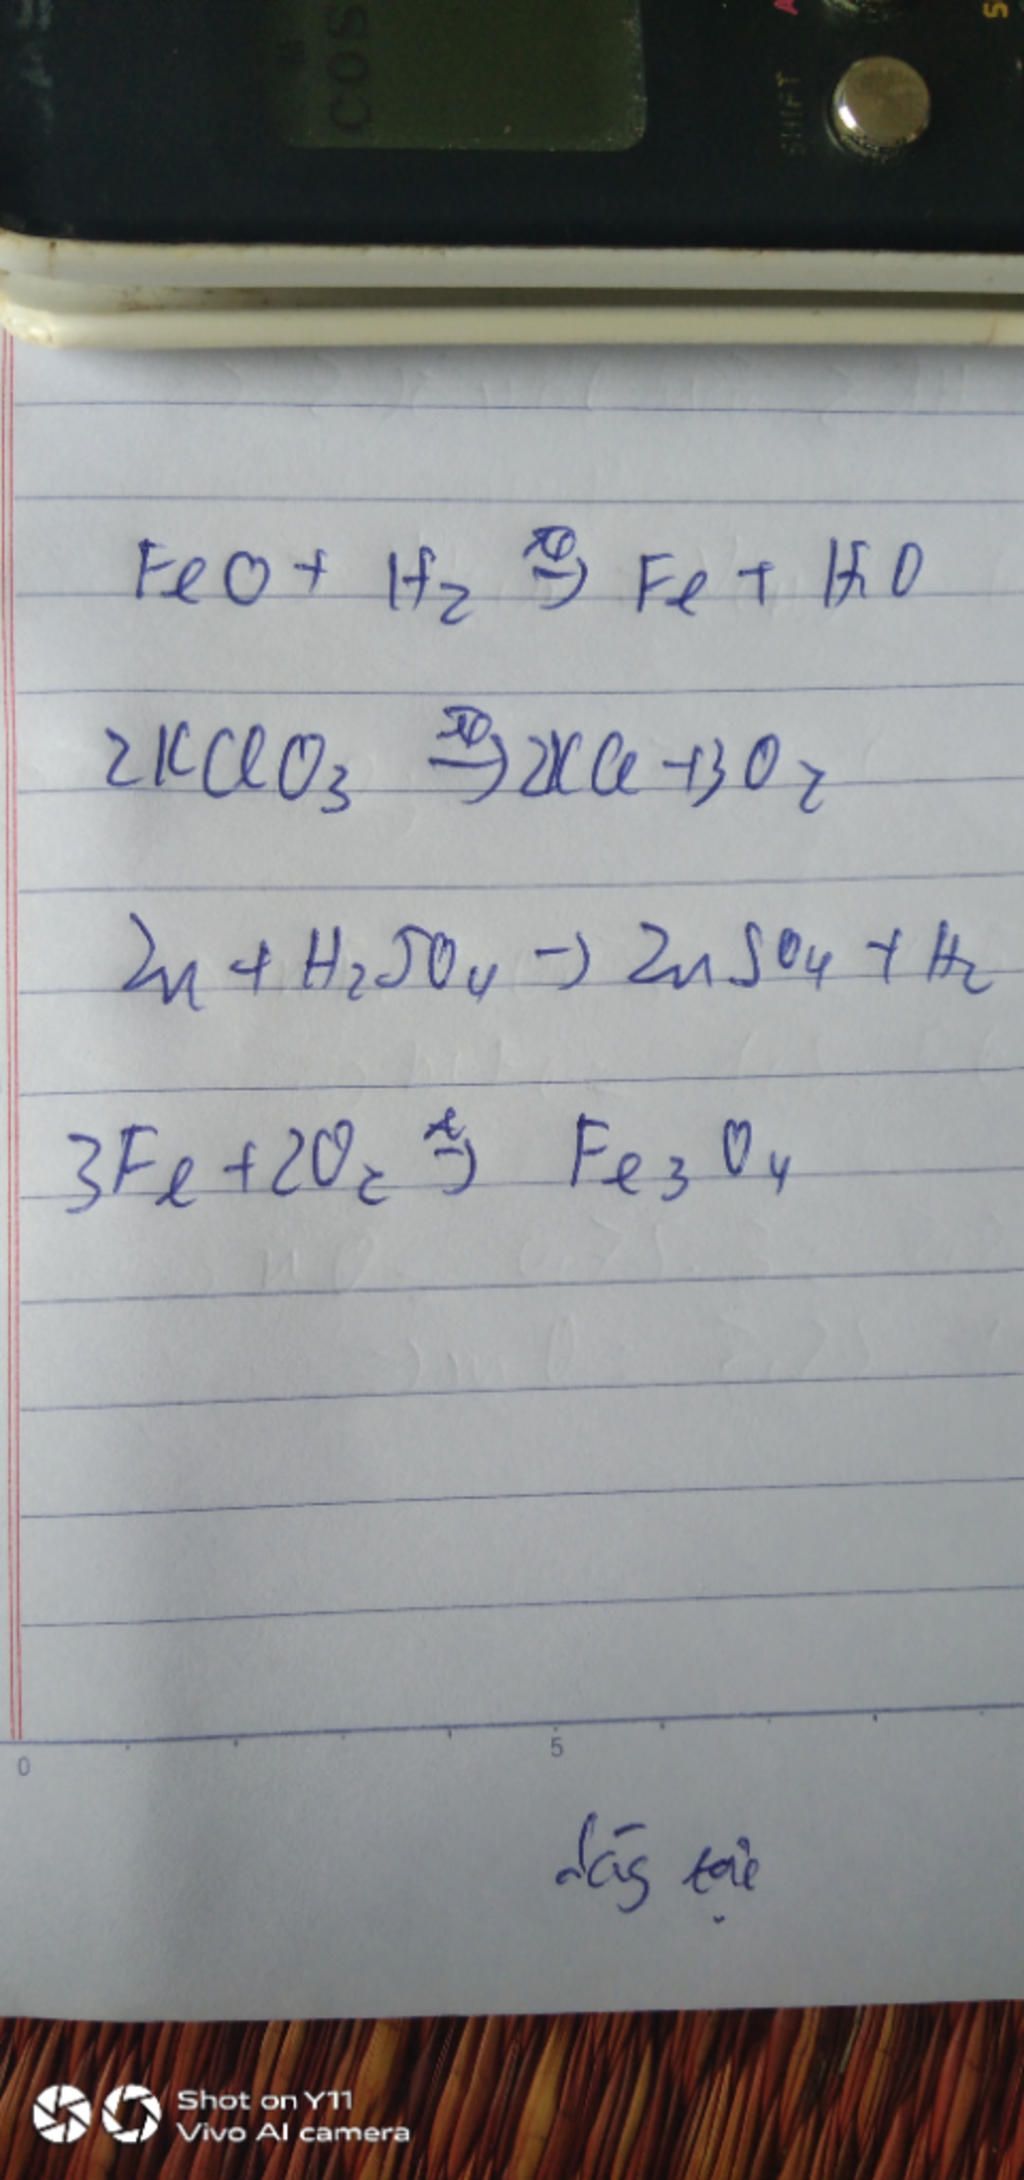 COS
SHIFT
A
S
FeO + H2 t°→ Fe + H2O
2KClO3 t°→ 2KCl + 3O2
Zn + H2SO4 → ZnSO4 + H2
3Fe + 2O2 t→ Fe3O4
0 5
Shot on Y11
Vivo AI camera